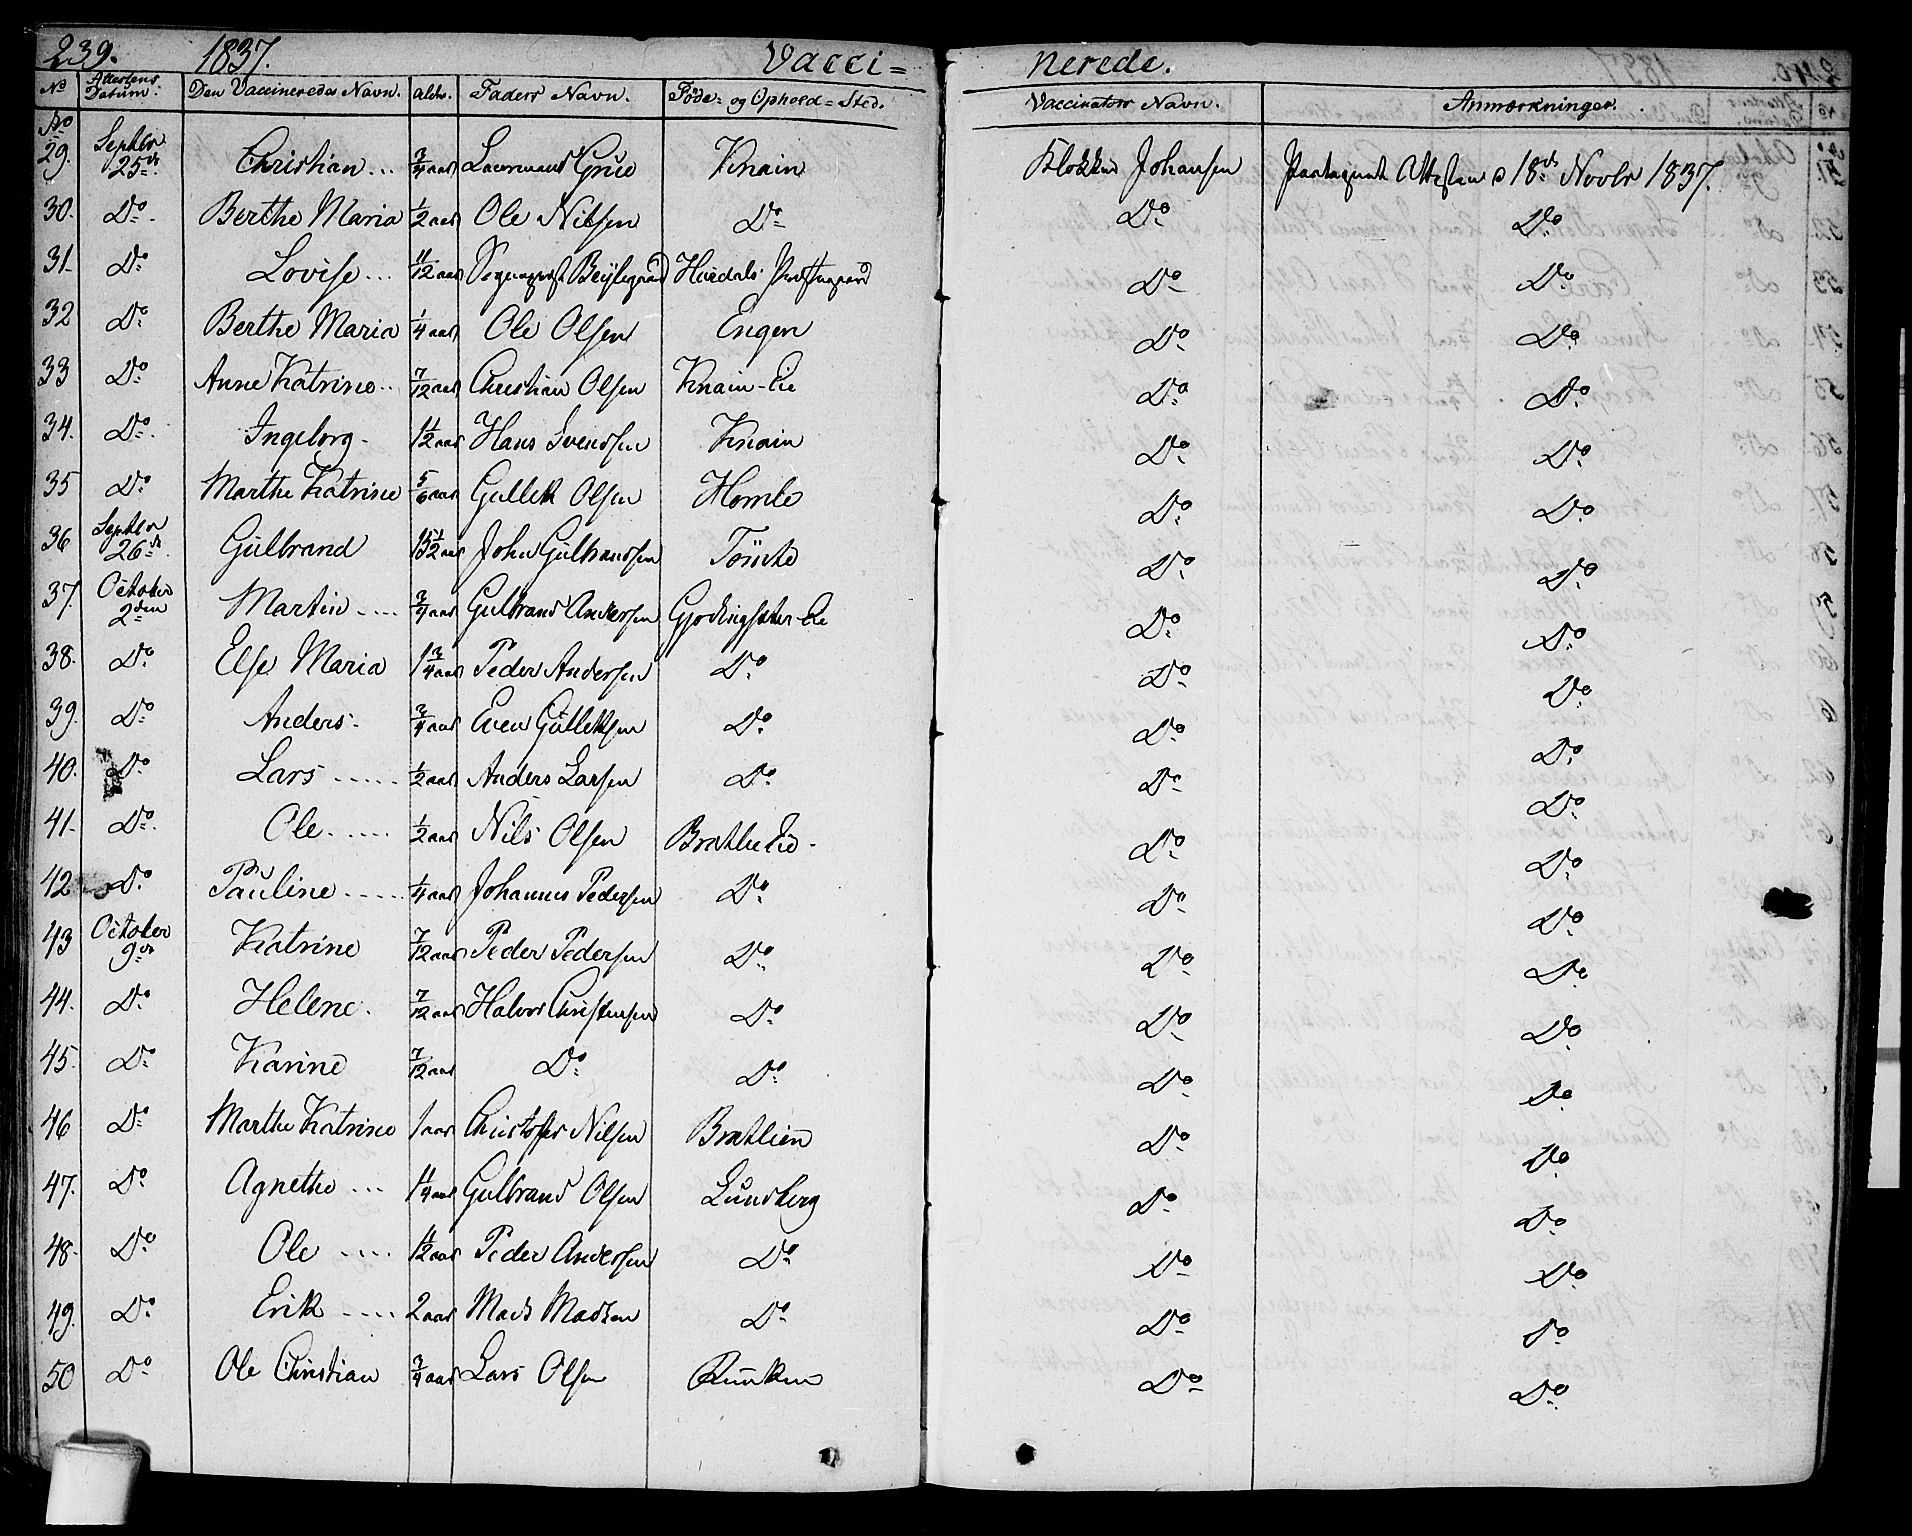 239. 1837. Vacci= nerede.
No Attestens Datum: Den Vaccineredes Navn. Alder. Faders Navn. Föde- og Ophold=Sted. Vaccinators Navn. Anmærkninger.
No 29. Septbr 25de Christian... 3/4 aar Knain Klokker Johansen Attesten 18de Novbr 1837.
30. Do Berthe Maria 1/2 aar Ole Nilsen Do Do Do
31. Do Lovise... 11/12 aar Hurdals Do Do
32 Do Berthe Maria 1/4 aar Ole Olsen Engen Do Do
33 Do Anne Katrine... 7/12 aar Christian Olsen Knain-Eie Do Do
34. Do Ingeborg. 1 1/2 aar Hans Svendsen Knain Do Do
35 Do Marthe Katrine 5/6 aar Gullek Olsen Homle Do Do
36 Septbr 26de Gülbrand John Gülbrandsen Tömte Do Do
37. October 2den Martin.... 3/4 aar Gulbrand Andersen Do Do
38. Do Else Maria 1 3/4 aar Peder Andersen Do Do Do
39. Do Anders. 3/4 aar Even Gülleksen Do Do Do
40. Do Lars..... 1/2 aar Anders Larsen Do Do Do
41. Do Ole..... 1/2 aar Nils Olsen Do Do
42 Do Pauline..... 1/4 aar Johannes Pedersen Do Do Do
43 October 9de Katrine 7/12 aar Peder Pedersen Do Do Do
44. Do Helene. 7/12 aar Halvor Christensen Do Do Do
45. Do Karine 7/12 aar Do Do Do Do
46 Do Marthe Katrine 1 aar Christofer Nilsen Bratlien Do Do
47. Do Agnethe... 1 1/4 aar Gulbrand Olsen Lundberg Do Do
48. Do Ole.... 1 1/2 aar Peder Andersen Do Do Do
49. Do Erik.... 2 aar Mads Madsen Do Do Do
50 Do Ole Christian 3/4 aar Lars Olsen Do Do